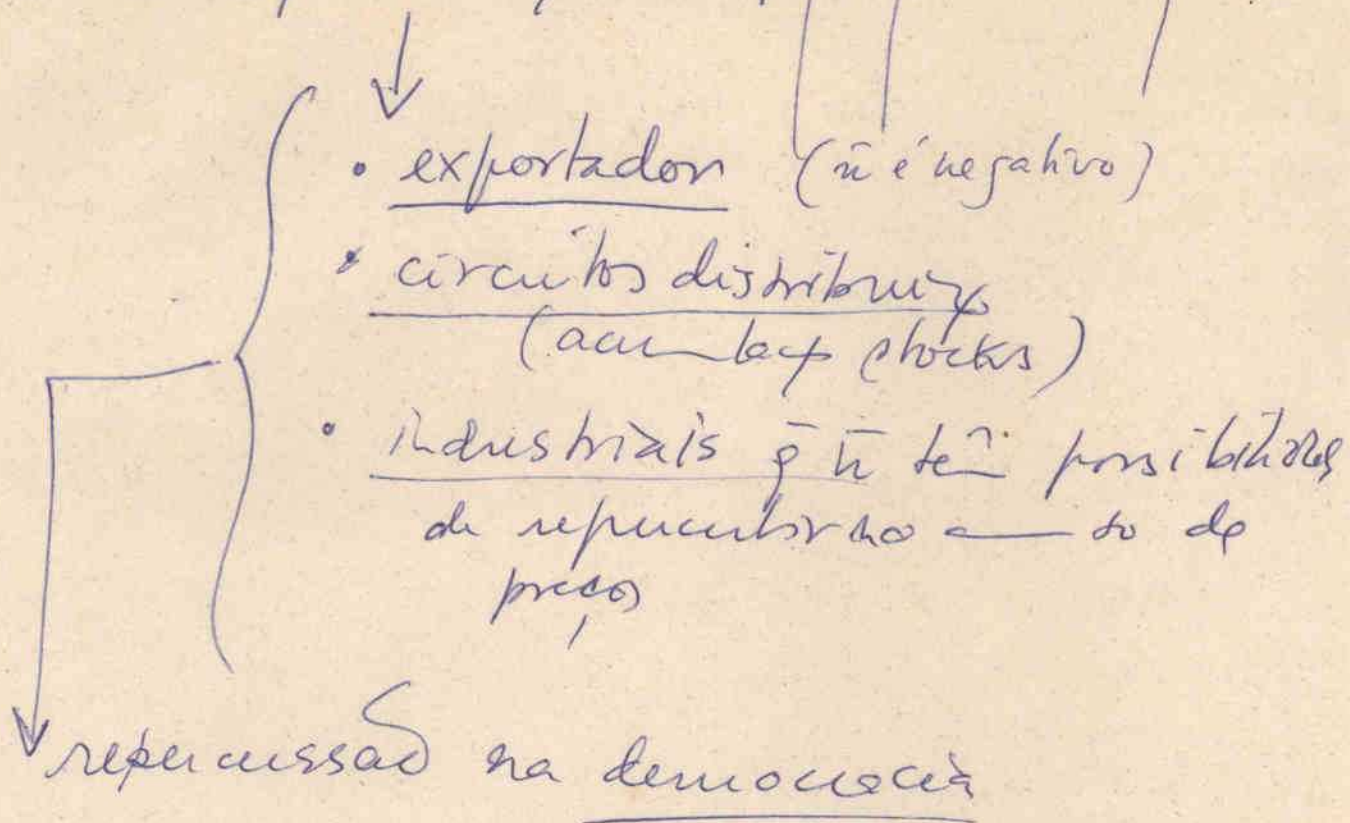 • exportador (ñ é negativo)
• circuitos distribuiç
(acumulaç stocks)
• industriais q̄ ñ têm possibilidades
de repercutir no aumento de
preços
repercussão na democracia